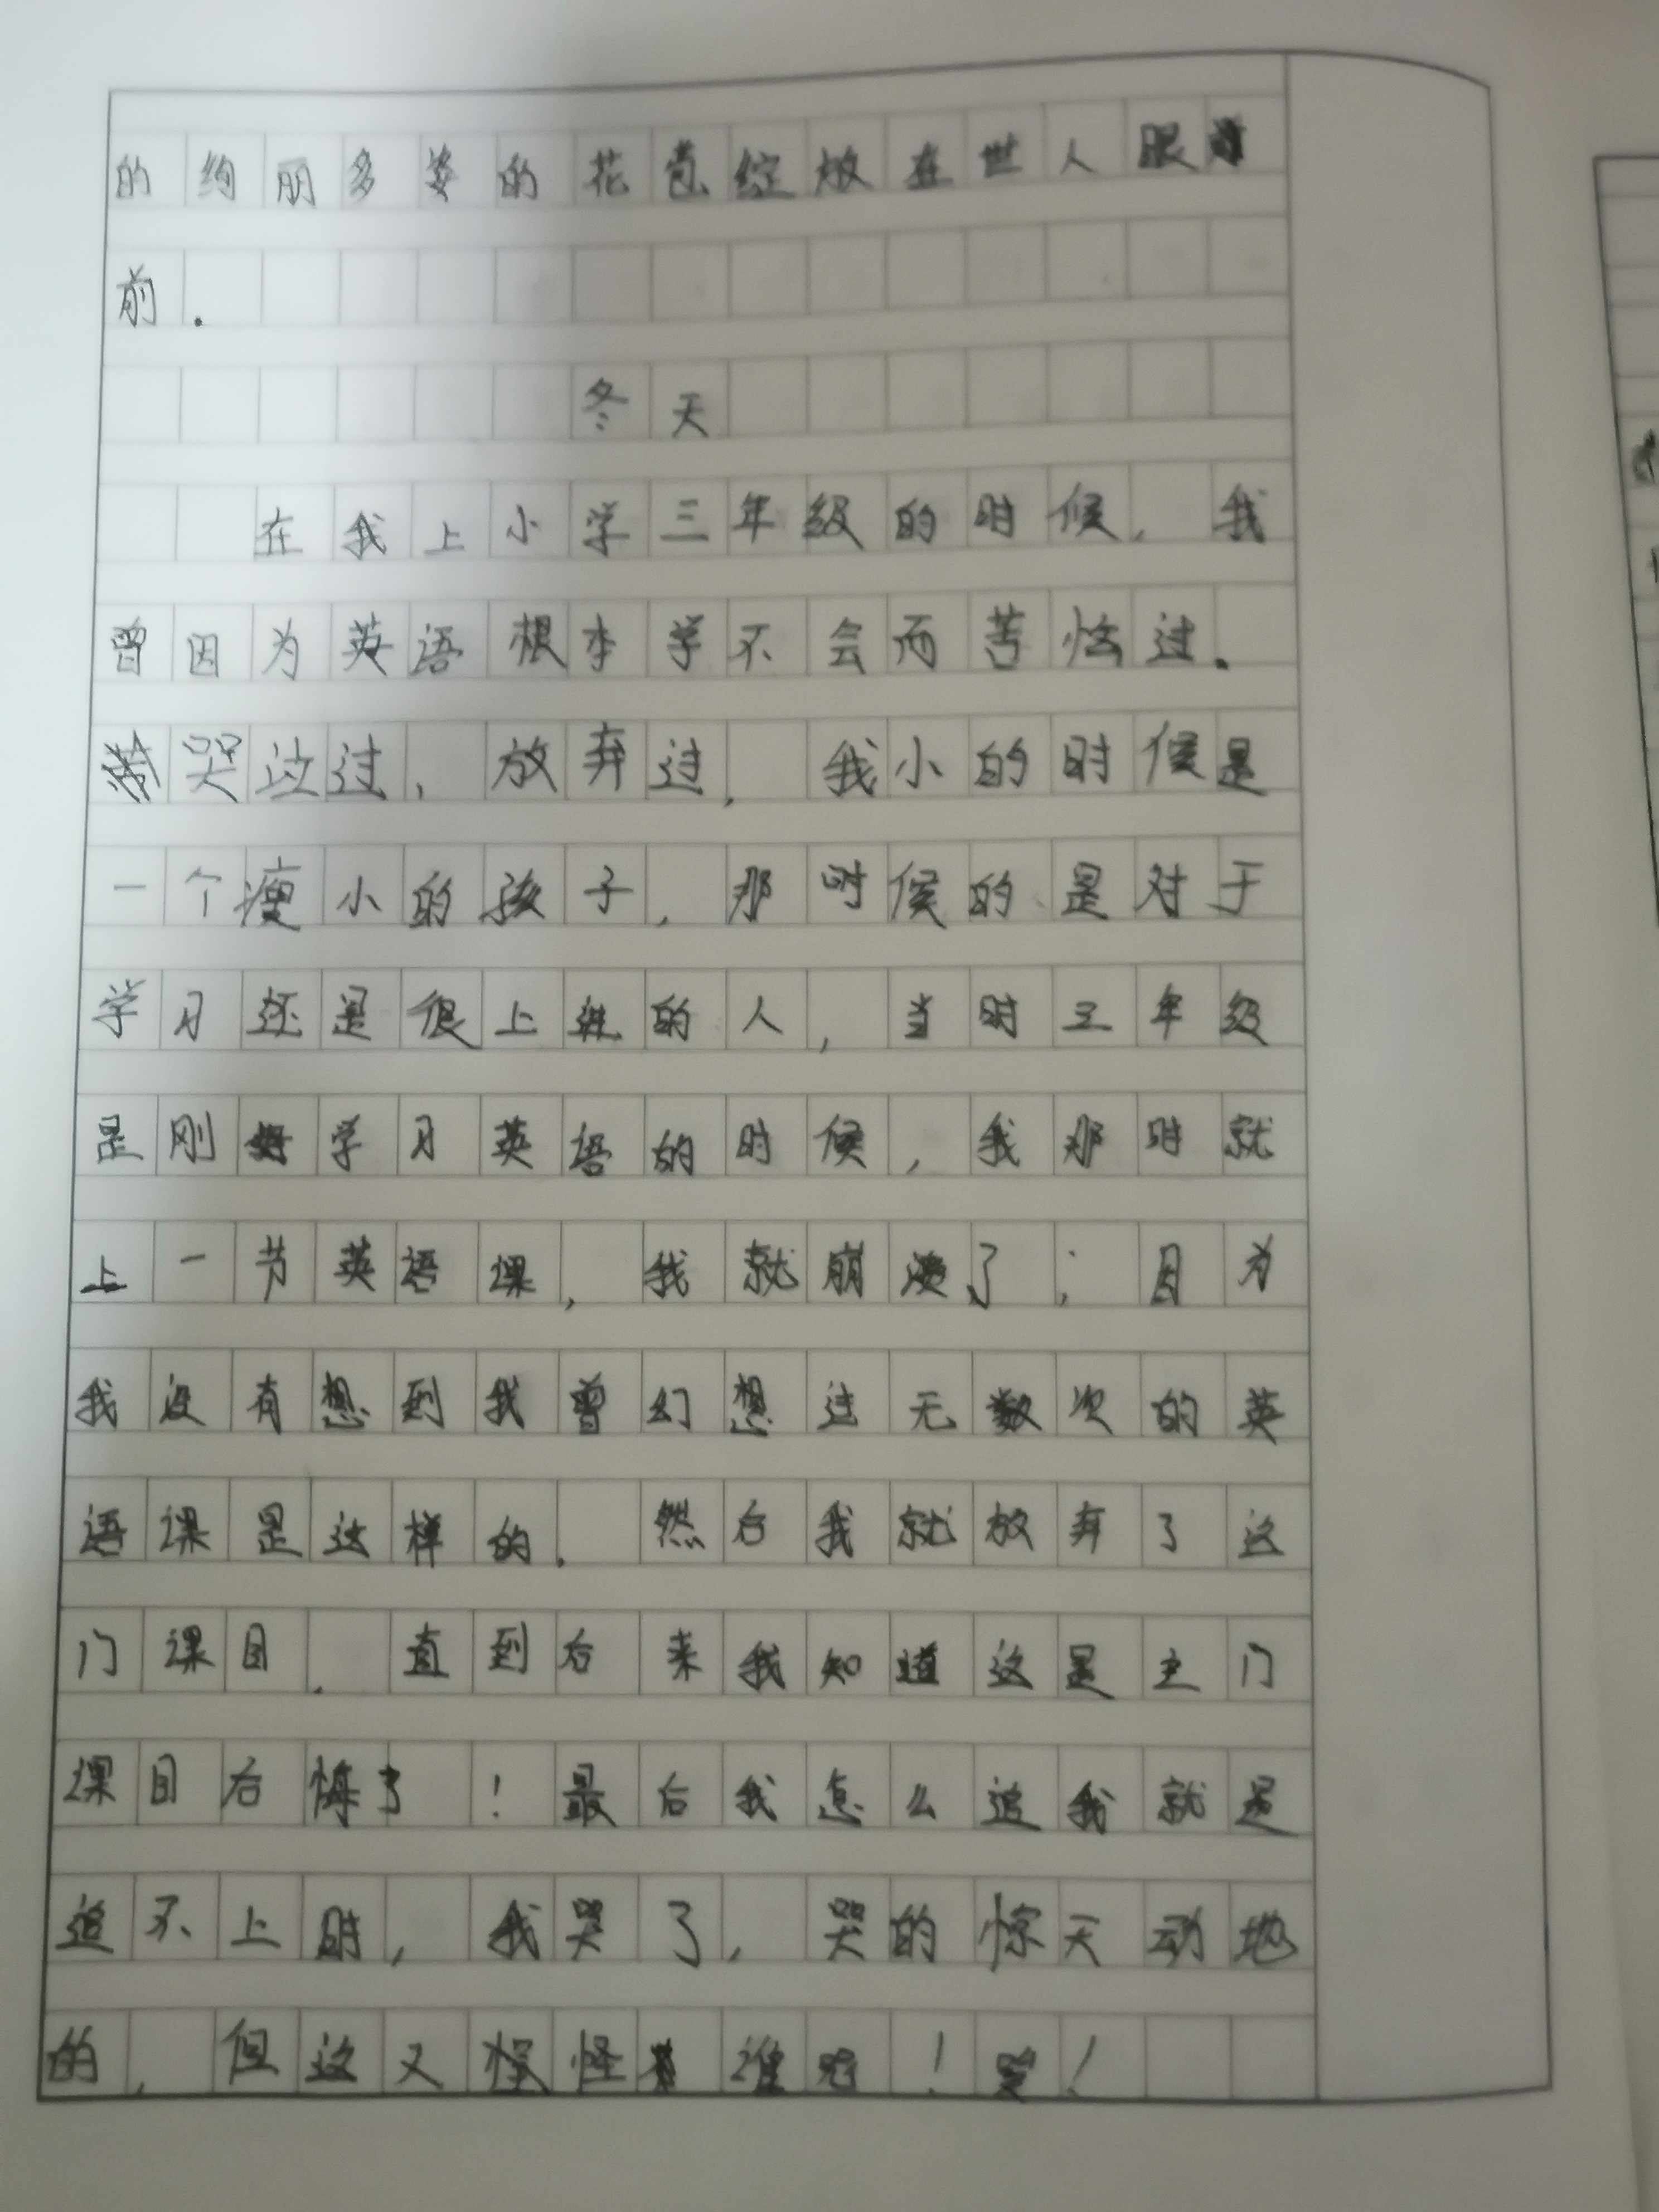 的绚丽多姿的花苞绽放在世人眼
前.
冬天
在我上小学三年级的时候，我
曾因为英语根本学不会而苦恼过.
哭过，放弃过，我小的时候是
一个瘦小的孩子，那时候的是对于
学习还是很上进的人，当时三年级
是刚学习英语的时候，我那时就
上一节英语课，我就崩溃了；因为
我没有想到我曾幻想过无数次的英
语课是这样的.然后我就放弃了这
门课目.直到后来我知道这是主门
课目后悔了！最后我怎么追我就是
追不上时，我哭了，哭的惊天动地
的，但这又怪怪谁呢！